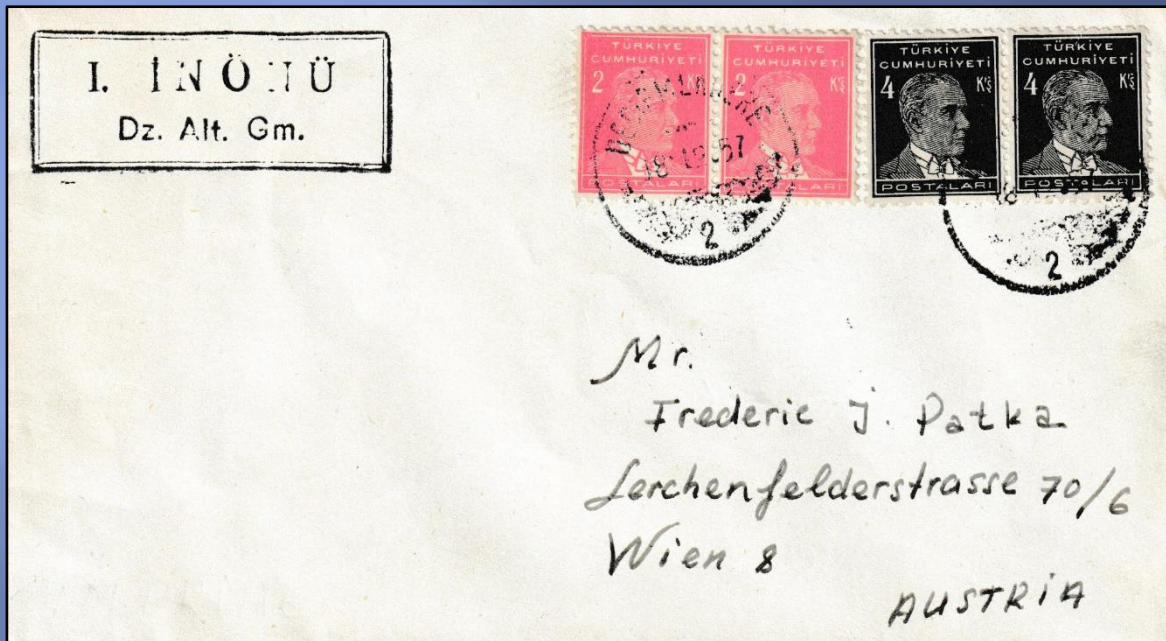 I. İNÖNÜ
Dz. Alt. Gm.
TÜRKİYE
CUMHURİYETİ
2 Krş
TÜRKİYE
CUMHURİYETİ
2 Krş
TÜRKİYE
CUMHURİYETİ
4 Krş
POSTALARI
TÜRKİYE
CUMHURİYETİ
4 Krş
POSTALARI
POSTALARI
POSTALARI
2
2
Mr.
Frederic J. Patka
Lerchenfelderstrasse 70/6
Wien 8
AUSTRİA